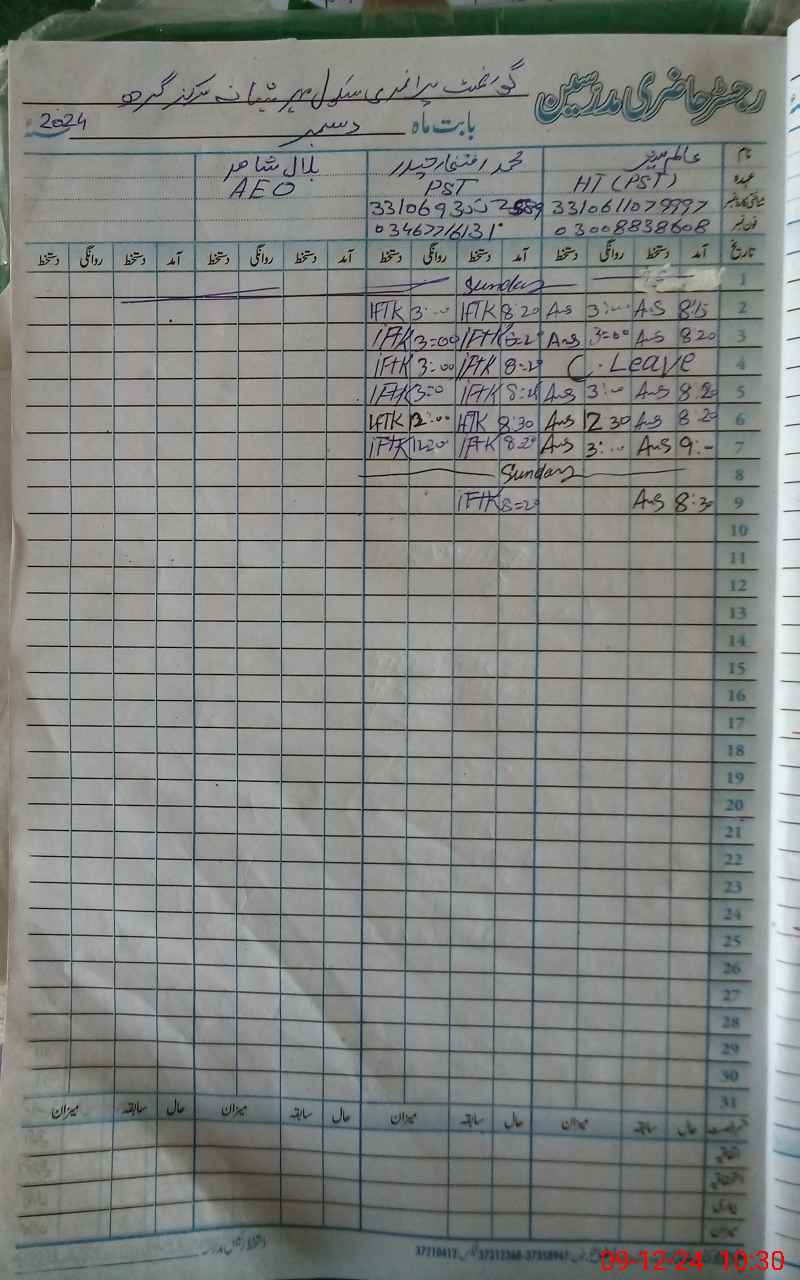 رجسٹر حاضری مدرسین گورنمنٹ پرائمری سکول
بابت ماہ دسمبر 2024
نام محمد افتخار حیدر بلال شاھد
عہدہ HT (PST) PST AEO
شناختی کارڈ نمبر 3310611079997
فون نمبر 03008838608 03467716131
تاریخ آمد دستخط روانگی دستخط آمد دستخط روانگی دستخط آمد دستخط روانگی دستخط آمد دستخط روانگی دستخط
1 Sunday
2 8:15 Ans 3:00 Ans 8:20 IFTK 3:00 IFTK
3 8:20 Ans 3=00 Ans 8=20 IFTK 3=00 IFTK
4 C. Leave 8=20 IFTK 3:00 IFTK
5 8:20 Ans 3:00 Ans IFTK 3=0 IFTK
6 8:20 Ans 12 30 Ans 8:30 IFTK 12:00 IFTK
7 9:- Ans 3:00 Ans 8:20 IFTK IFTK
8 Sunday
9 8:30 Ans 8=20 IFTK
10
11
12
13
14
15
16
17
18
19
20
21
22
23
24
25
26
27
28
29
30
31
حال سابقہ میزان حال سابقہ میزان حال سابقہ میزان حال سابقہ میزان
اتفاقیہ
استحقاقیہ
بیماری
میزان
37210417 37312368-37358967
09-12-24 10:30